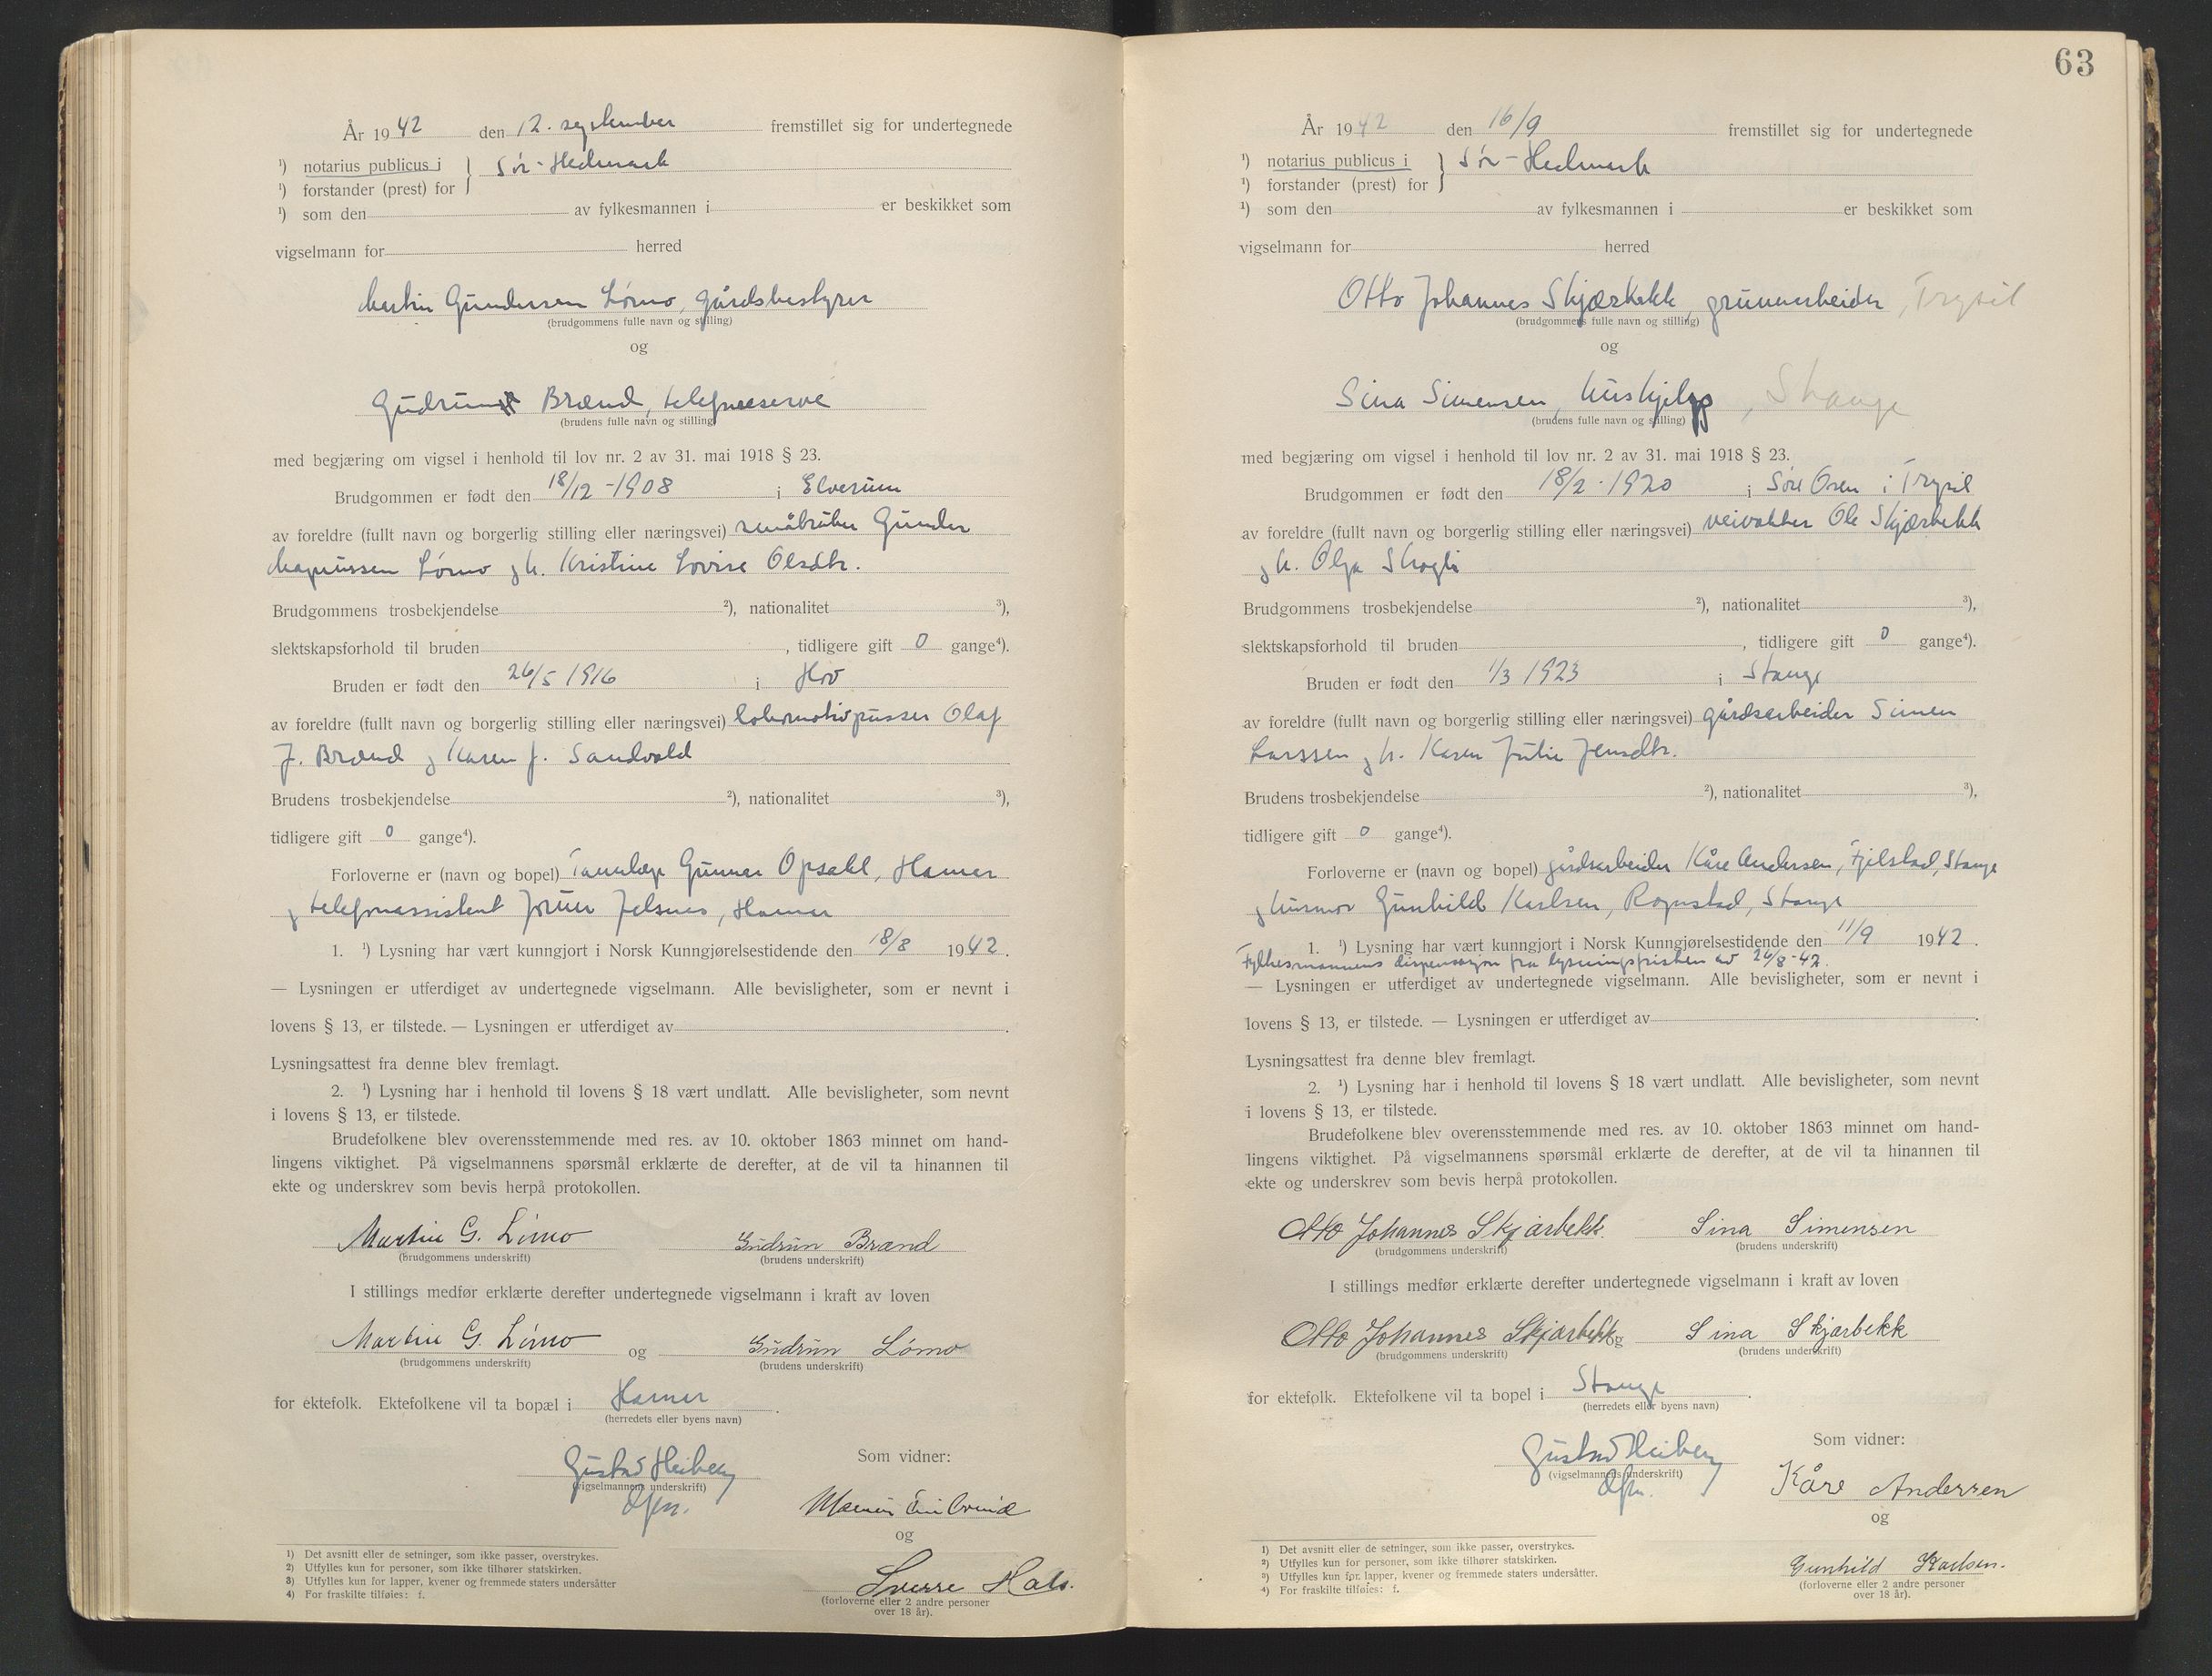 År 1942 den 12. september fremstillet sig for undertegnede
¹) notarius publicus i } Sør-Hedmark
¹) forstander (prest) for
¹) som den av fylkesmannen i er beskikket som
vigselmann for herred
Martin Gundersen Lømo, gårdsbestyrer
(brudgommens fulle navn og stilling)
og
Gudrun Brænd, telefonreserve
(brudens fulle navn og stilling)
med begjæring om vigsel i henhold til lov nr. 2 av 31. mai 1918 § 23.
Brudgommen er født den 18/12-1908 i Elverum
av foreldre (fullt navn og borgerlig stilling eller næringsvei) småbruker Gunder
Magnussen Lømo og h. Kristine Lovise Olsdtr.
Brudgommens trosbekjendelse ²), nationalitet ³),
slektskapsforhold til bruden , tidligere gift 0 gange⁴).
Bruden er født den 26/5 1916 i Hov
av foreldre (fullt navn og borgerlig stilling eller næringsvei) lokomotivpusser Olaf
J. Brænd og Karen J. Sandvold
Brudens trosbekjendelse ²), nationalitet ³),
tidligere gift 0 gange⁴).
Forloverne er (navn og bopel) Tannlæge Gunnar Opsahl, Hamar
og telefonassistent Jorun Jelsnes, Hamar
1. ¹) Lysning har vært kunngjort i Norsk Kunngjørelsestidende den 18/8 1942.
— Lysningen er utferdiget av undertegnede vigselmann. Alle bevisligheter, som er nevnt i
lovens § 13, er tilstede. — Lysningen er utferdiget av .
Lysningsattest fra denne blev fremlagt.
2. ¹) Lysning har i henhold til lovens § 18 vært undlatt. Alle bevisligheter, som nevnt
i lovens § 13, er tilstede.
Brudefolkene blev overensstemmende med res. av 10. oktober 1863 minnet om hand-
lingens viktighet. På vigselmannens spørsmål erklærte de derefter, at de vil ta hinannen til
ekte og underskrev som bevis herpå protokollen.
Martin G. Lømo Gudrun Brænd
(brudgommens underskrift) (brudens underskrift)
I stillings medfør erklærte derefter undertegnede vigselmann i kraft av loven
Martin G. Lømo og Gudrun Lømo
(brudgommens underskrift) (brudens underskrift)
for ektefolk. Ektefolkene vil ta bopæl i Hamar .
(herredets eller byens navn)
Som vidner:
Gustav Heiberg
(vigselmannens underskrift)
dfm.
og
Sverre Hals.
(forloverne eller 2 andre personer
over 18 år).
1) Det avsnitt eller de setninger, som ikke passer, overstrykes.
2) Utfylles kun for personer, som ikke tilhører statskirken.
3) Utfylles kun for lapper, kvener og fremmede staters undersåtter
4) For fraskilte tilføies: f.
63
År 1942 den 16/9 fremstillet sig for undertegnede
¹) notarius publicus i } Sør-Hedmark
¹) forstander (prest) for
¹) som den av fylkesmannen i er beskikket som
vigselmann for herred
Otto Johannes Skjærbekk, gruvearbeider, Trysil
(brudgommens fulle navn og stilling)
og
Sina Simensen, hushjelp, Stange
(brudens fulle navn og stilling)
med begjæring om vigsel i henhold til lov nr. 2 av 31. mai 1918 § 23.
Brudgommen er født den 18/2-1920 i Søre Osen i Trysil
av foreldre (fullt navn og borgerlig stilling eller næringsvei) veivokter Ole Skjærbekk
og h. Olga Skogli
Brudgommens trosbekjendelse ²), nationalitet ³),
slektskapsforhold til bruden , tidligere gift 0 gange⁴).
Bruden er født den 1/3 1923 i Stange
av foreldre (fullt navn og borgerlig stilling eller næringsvei) gårdsarbeider Simen
Larssen og h. Karen Julie Jensdtr.
Brudens trosbekjendelse ²), nationalitet ³),
tidligere gift 0 gange⁴).
Forloverne er (navn og bopel) gårdsarbeider Kåre Andersen, Fjelstad, Stange
og husmor Gunhild Karlsen, Rognstad, Stange
1. ¹) Lysning har vært kunngjort i Norsk Kunngjørelsestidende den 11/9 1942.
Fylkesmannens dispensasjon fra lysningsfristen av 26/8-42.
— Lysningen er utferdiget av undertegnede vigselmann. Alle bevisligheter, som er nevnt i
lovens § 13, er tilstede. — Lysningen er utferdiget av .
Lysningsattest fra denne blev fremlagt.
2. ¹) Lysning har i henhold til lovens § 18 vært undlatt. Alle bevisligheter, som nevnt
i lovens § 13, er tilstede.
Brudefolkene blev overensstemmende med res. av 10. oktober 1863 minnet om hand-
lingens viktighet. På vigselmannens spørsmål erklærte de derefter, at de vil ta hinannen til
ekte og underskrev som bevis herpå protokollen.
Otto Johannes Skjærbekk. Sina Simensen
(brudgommens underskrift) (brudens underskrift)
I stillings medfør erklærte derefter undertegnede vigselmann i kraft av loven
Otto Johannes Skjærbekk og Sina Skjærbekk
(brudgommens underskrift) (brudens underskrift)
for ektefolk. Ektefolkene vil ta bopel i Stange .
(herredets eller byens navn)
Som vidner:
Gustav Heiberg
(vigselmannens underskrift)
dfm.
Kåre Andersen
og
Gunhild Karlsen.
(forloverne eller 2 andre personer
over 18 år).
1) Det avsnitt eller de setninger, som ikke passer, overstrykes.
2) Utfylles kun for personer, som ikke tilhører statskirken.
3) Utfylles kun for lapper, kvener og fremmede staters undersåtter.
4) For fraskilte tilføies: f.